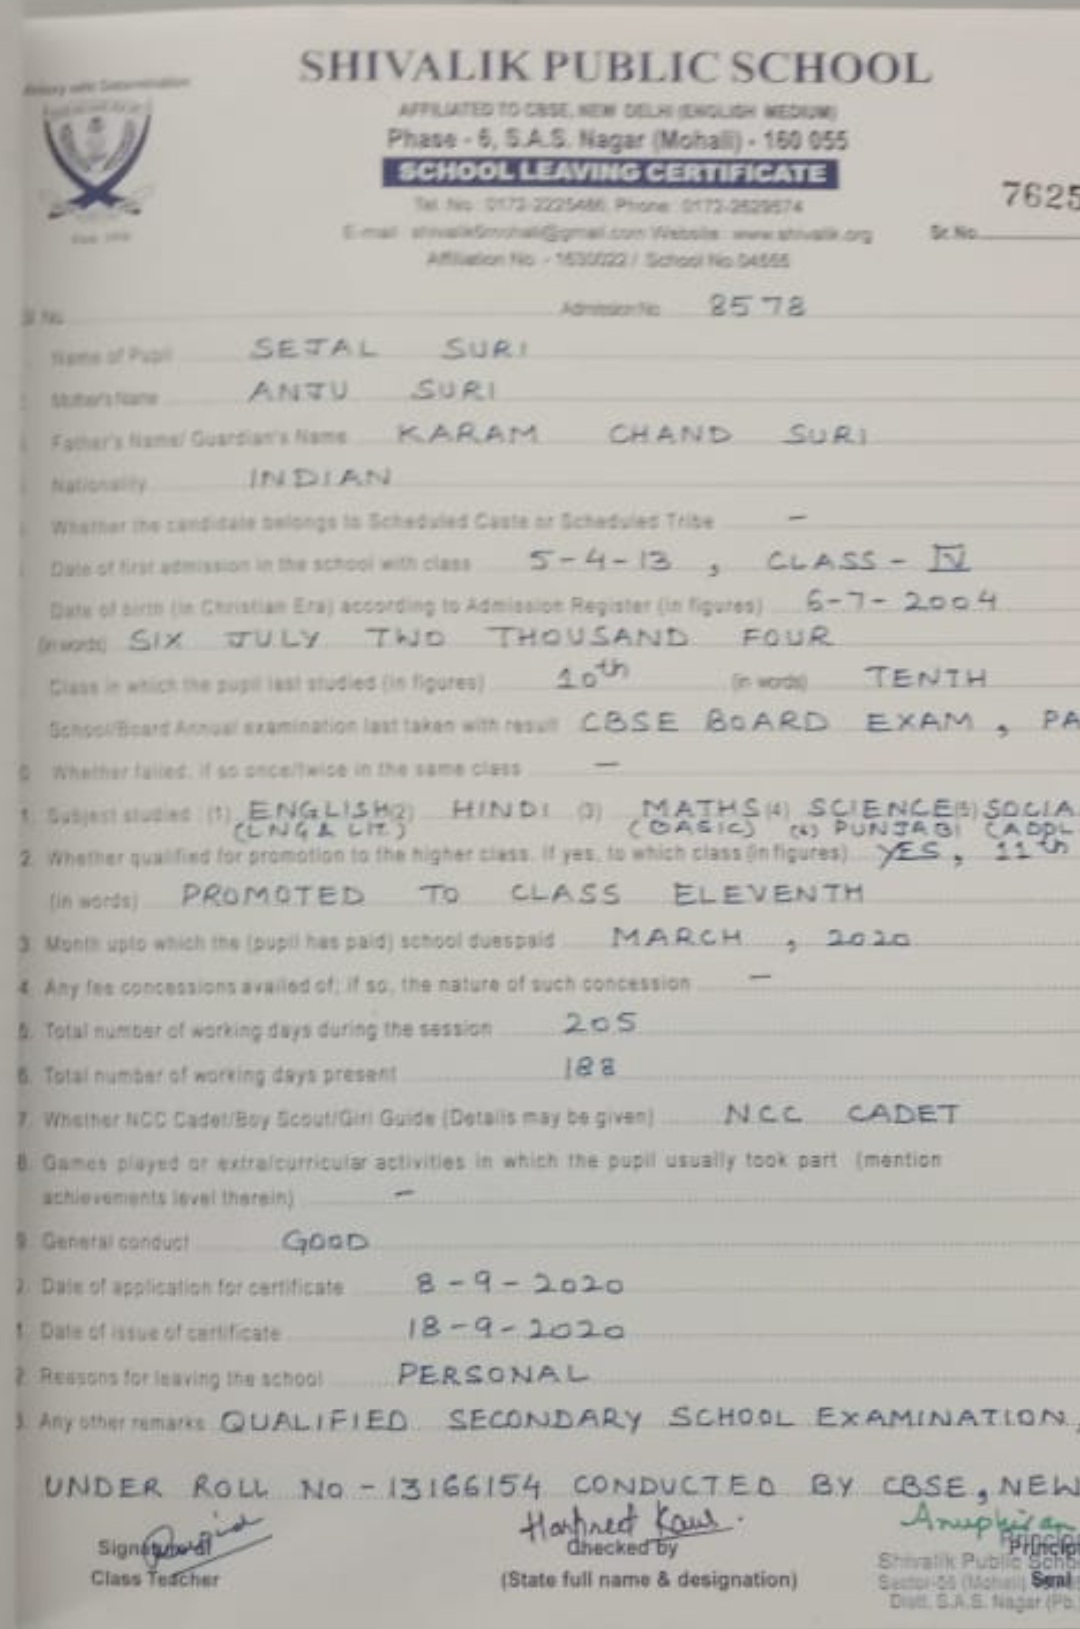 SHIVALIK PUBLIC SCHOOL
AFFILIATED TO CBSE, NEW DELHI (ENGLISH MEDIUM)
Phase - 6, S.A.S. Nagar (Mohali) - 160 055
SCHOOL LEAVING CERTIFICATE
7625
Tel. No. : 0172-2225466, Phone : 0172-2629674
E-mail : shivalik6mohali@gmail.com Website : www.shivalik.org Sr. No.
Affiliation No. - 1630022 / School No. 04555
Admission No. 8578
Name of Pupil SEJAL SURI
Mother's Name ANJU SURI
Father's Name/ Guardian's Name KARAM CHAND SURI
Nationality INDIAN
Whether the candidate belongs to Scheduled Caste or Scheduled Tribe –
Date of first admission in the school with class 5-4-13 , CLASS - IV
Date of birth (in Christian Era) according to Admission Register (in figures) 6-7-2004
(in words) SIX JULY TWO THOUSAND FOUR
Class in which the pupil last studied (in figures) 10th (in words) TENTH
School/Board Annual examination last taken with result CBSE BOARD EXAM , PA
0. Whether failed, if so once/twice in the same class –
1. Subject studied : (1) ENGLISH (2) HINDI (3) MATHS (4) SCIENCE (5) SOCIA
(LNG & LIT.) (BASIC) (6) PUNJABI (ADDL
2. Whether qualified for promotion to the higher class, if yes, to which class (in figures) YES, 11th
(in words) PROMOTED TO CLASS ELEVENTH
3. Month upto which the (pupil has paid) school duespaid MARCH , 2020
4. Any fee concessions availed of; if so, the nature of such concession –
5. Total number of working days during the session 205
6. Total number of working days present 188
7. Whether NCC Cadet/Boy Scout/Girl Guide (Details may be given) NCC CADET
8. Games played or extra/curricular activities in which the pupil usually took part (mention
achievements level therein) –
9. General conduct GOOD
Date of application for certificate 8-9-2020
1. Date of issue of certificate 18-9-2020
2. Reasons for leaving the school PERSONAL
3. Any other remarks QUALIFIED SECONDARY SCHOOL EXAMINATION,
UNDER ROLL NO - 13166154 CONDUCTED BY CBSE, NEW
Harpreet Kaur. Anupkiran
Signature of Checked by Princip
Class Teacher (State full name & designation) Shivalik Public Schoo
Seal
Distt. S.A.S. Nagar (Pb.